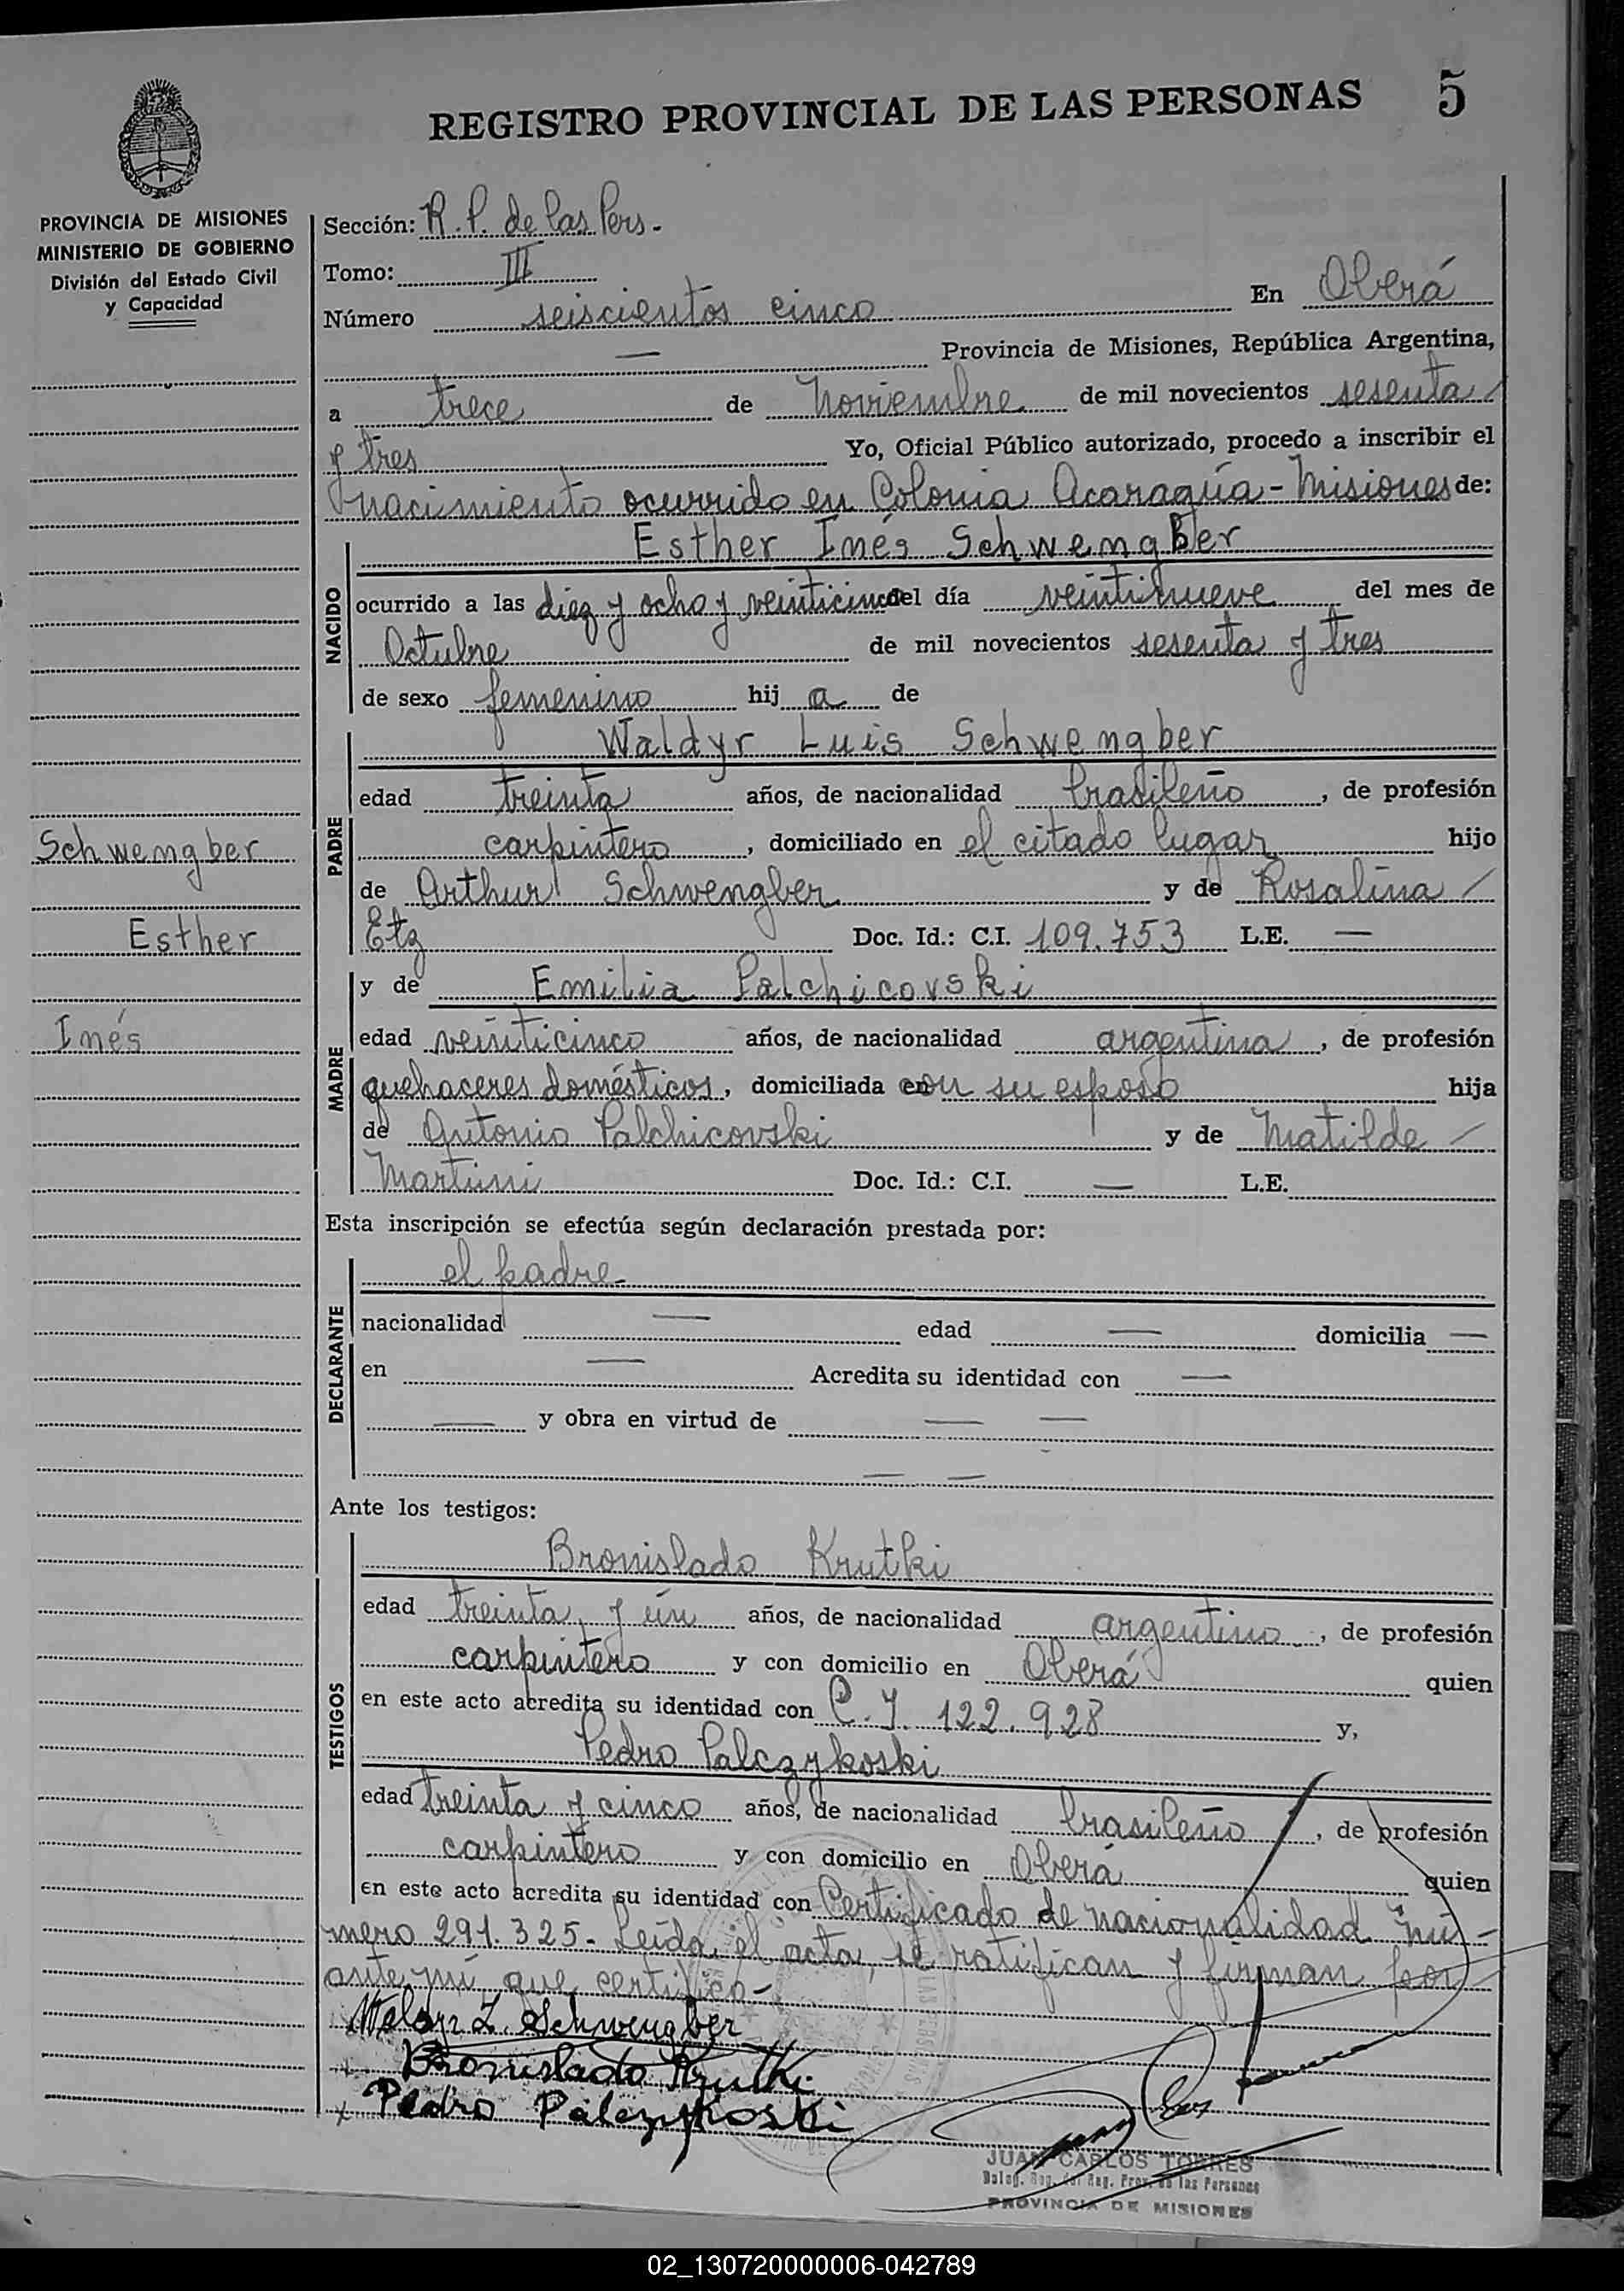 REGISTRO PROVINCIAL DE LAS PERSONAS 5
PROVINCIA DE MISIONES
MINISTERIO DE GOBIERNO
División del Estado Civil
y Capacidad
Sección: R. P. de las Pers.-
Tomo: III
Número seiscientos cinco En Oberá
— Provincia de Misiones, República Argentina,
a trece de Noviembre de mil novecientos sesenta /
y tres Yo, Oficial Público autorizado, procedo a inscribir el
nacimiento ocurrido en Colonia Acaragúa - Misiones de:
NACIDO
Esther Inés Schwengber
ocurrido a las diez y ocho y veinticinco del día veintinueve del mes de
Octubre de mil novecientos sesenta y tres
de sexo femenino hij a de
PADRE
Waldyr Luis Schwengber
edad treinta años, de nacionalidad brasileño, de profesión
carpintero, domiciliado en el citado lugar hijo
de Arthur Schwengber y de Rosalina /
Etz Doc. Id.: C.I. 109.753 L.E. —
Schwengber
Esther
Inés
MADRE
y de Emilia Palchicovski
edad veinticinco años, de nacionalidad argentina, de profesión
quehaceres domésticos, domiciliada con su esposo hija
de Antonio Palchicovski y de Matilde /
Martini Doc. Id.: C.I. — L.E.
Esta inscripción se efectúa según declaración prestada por:
DECLARANTE
el padre-
nacionalidad — edad — domicilia —
en — Acredita su identidad con —
— y obra en virtud de — —
— —
Ante los testigos:
TESTIGOS
Bronislado Krutki
edad treinta y un años, de nacionalidad argentino, de profesión
carpintero y con domicilio en Oberá quien
en este acto acredita su identidad con C. I. 122.928 y,
Pedro Palczykoski
edad treinta y cinco años, de nacionalidad brasileño, de profesión
carpintero y con domicilio en Oberá quien
en este acto acredita su identidad con Certificado de nacionalidad nú-
mero 291.325- Leída el acta, se ratifican y firman por /
ante mí que certifico-
L. Schwengber
Bronislado Krutki
x Pedro Palczykoski
JUAN CARLOS TORRES
Deleg. Reg. del Reg. Prov. de las Personas
PROVINCIA DE MISIONES
02_130720000006-042789